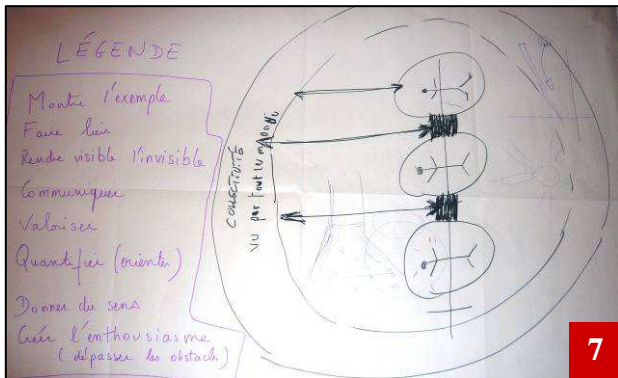 LÉGENDE
Montre l'exemple
Faire lien
Rendre visible l'invisible
Communiquer
Valoriser
Quantifier (orienter)
Donner du sens
Créer l'enthousiasme
(dépasser les obstacles)
COLLECTIVITÉ
VU par tout le monde
7